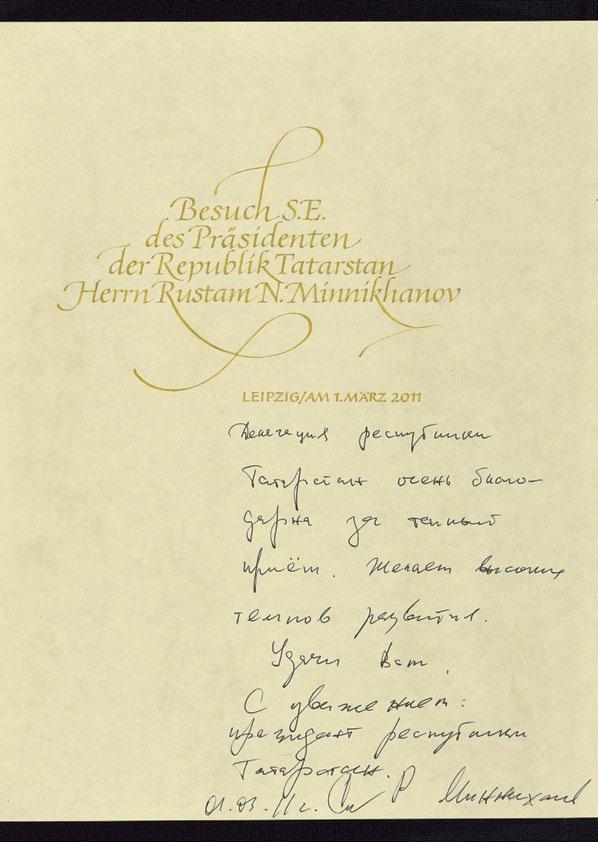 Besuch S.E.
des Präsidenten
der Republik Tatarstan
Herrn Rustam N. Minnikhanov
LEIPZIG/AM 1. MÄRZ 2011
Делегация республики
Татарстан очень благо-
дарна за теплый
приём. Желает высоких
темпов развития.
Удачи Вам.
С уважением:
президент республики
Татарстан.
01.03.11г. Р Миннихан